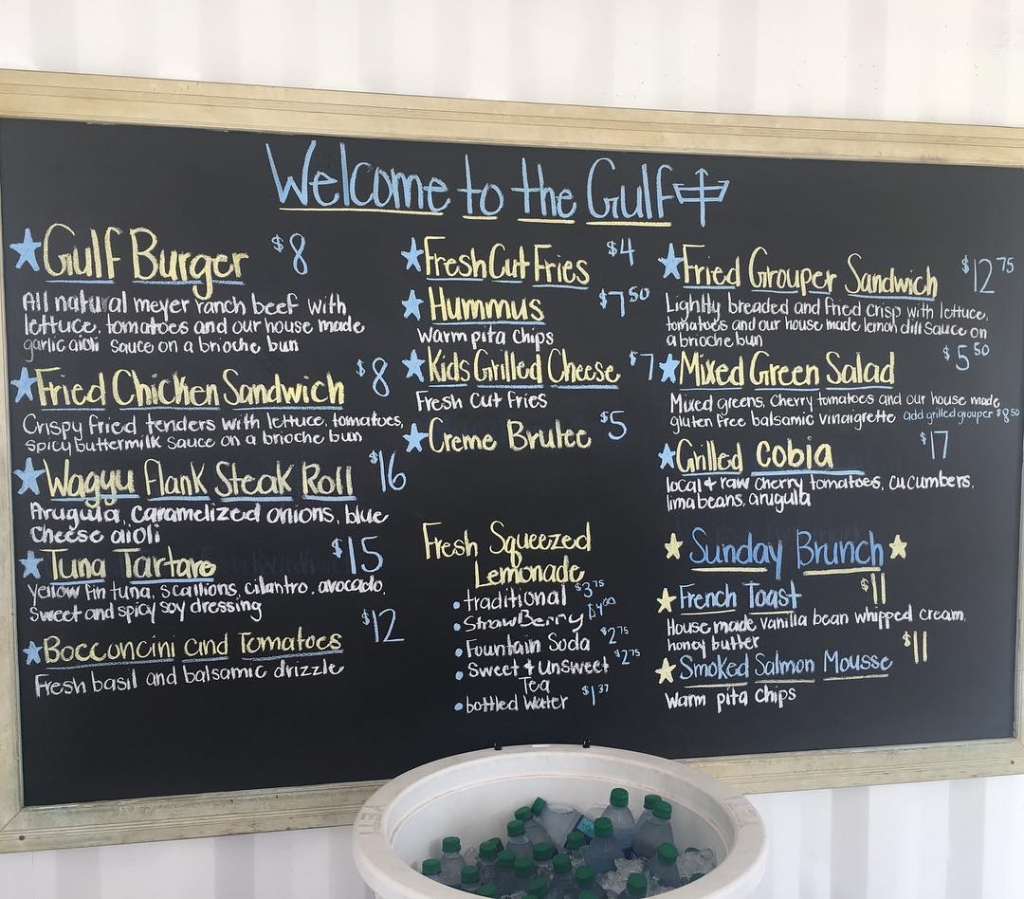 Welcome to the Gulf
Gulf Burger $8
All natural meyer ranch beef with
lettuce, tomatoes and our house made
garlic aioli sauce on a brioche bun
Fried Chicken Sandwich $8
Crispy fried tenders with lettuce, tomatoes,
spicy buttermilk sauce on a brioche bun
Wagyu Flank Steak Roll $16
Arugula, caramelized onions, blue
cheese aioli
Tuna Tartare $15
yellow fin tuna, scallions, cilantro, avocado,
sweet and spicy soy dressing
Bocconcini and Tomatoes $12
Fresh basil and balsamic drizzle
Fresh Cut Fries $4
Hummus $7.50
warm pita chips
Kids Grilled Cheese $7
Fresh Cut Fries
Creme Brulee $5
Fresh Squeezed
Lemonade
• traditional $3.75
• Strawberry $4.00
• Fountain Soda $2.75
• Sweet & Unsweet $2.75
Tea
• bottled Water $1.37
Fried Grouper Sandwich $12.75
Lightly breaded and fried crisp with lettuce,
tomatoes and our house made lemon dill sauce on
a brioche bun
Mixed Green Salad $5.50
Mixed greens, cherry tomatoes and our house made
gluten free balsamic vinaigrette add grilled grouper $8.50
Grilled Cobia $17
local & raw cherry tomatoes, cucumbers,
lima beans, arugula
Sunday Brunch
French Toast $11
House made vanilla bean whipped cream,
honey butter
Smoked Salmon Mousse $11
warm pita chips